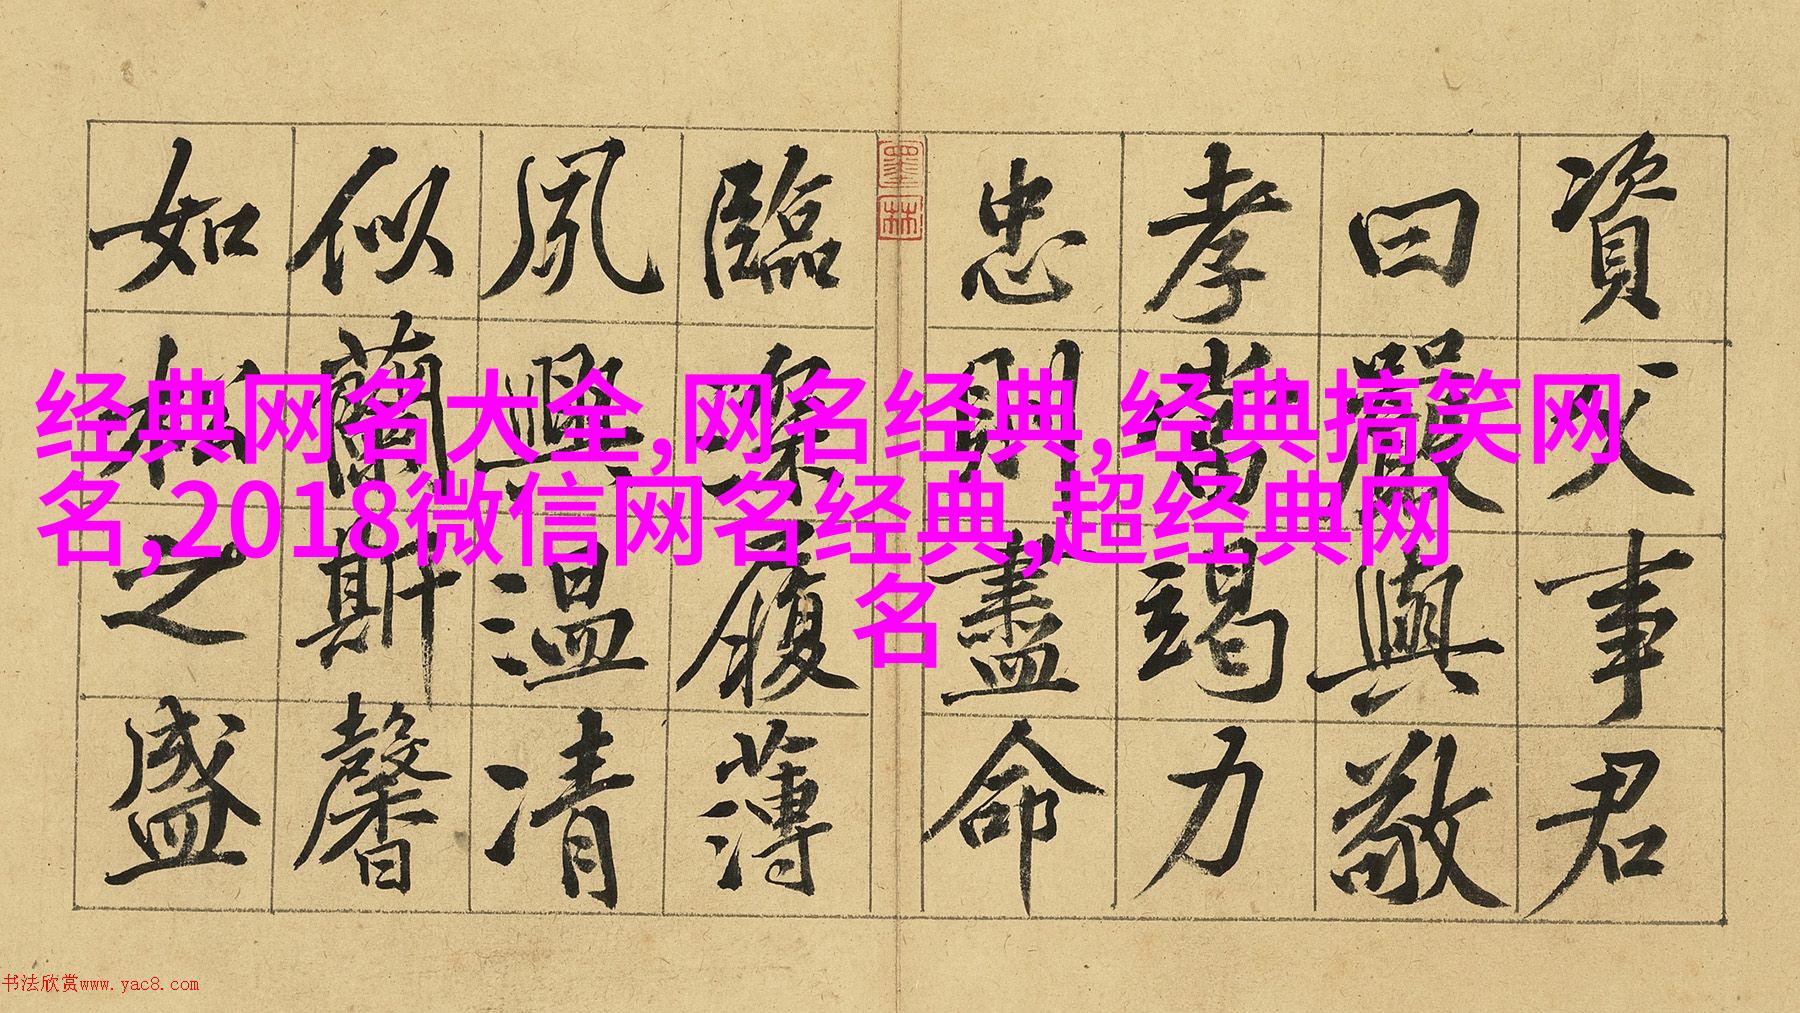 资父事君
曰嚴與敬
孝當竭力
忠則盡命
臨深履薄
夙興溫凊
似蘭斯馨
如松之盛
墨林
经典网名大全,网名经典,经典搞笑网
名,2018微信网名经典,超经典网
名
书法欣赏www.yac8.com